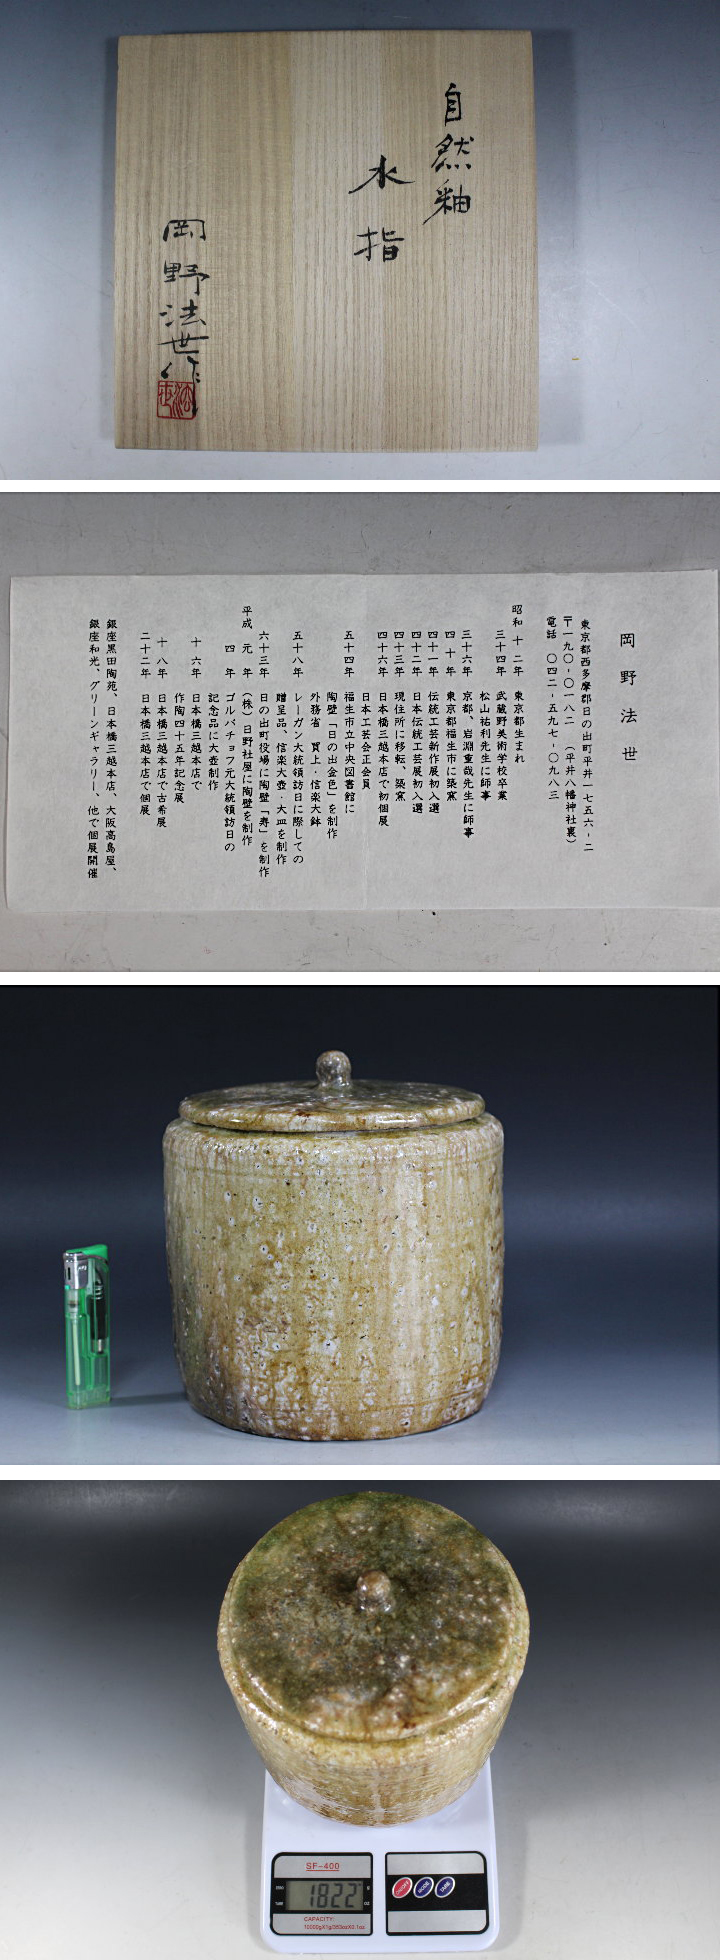 自然釉
水指
岡野法世作
法世
岡野法世
東京都西多摩郡日の出町平井一七五六-二
〒一九〇-〇一八二 (平井八幡神社裏)
電話 〇四二-五九七-〇九八三
昭和 十二年 東京都生まれ
三十四年 武蔵野美術学校卒業
松山祐利先生に師事
三十六年 京都、岩淵重哉先生に師事
四十年 東京都福生市に築窯
四十一年 伝統工芸新作展初入選
四十二年 日本伝統工芸展初入選
四十三年 現住所に移転、築窯
四十六年 日本橋三越本店で初個展
日本工芸会正会員
五十四年 福生市立中央図書館に
陶壁「日の出金色」を制作
外務省 買上・信楽大鉢
五十八年 レーガン大統領訪日に際しての
贈呈品、信楽大壺・大皿を制作
六十三年 日の出町役場に陶壁「寿」を制作
平成 元年 (株)日野社屋に陶壁を制作
四年 ゴルバチョフ元大統領訪日の
記念品に大壺制作
十六年 日本橋三越本店で
作陶四十五年記念展
十八年 日本橋三越本店で古希展
二十二年 日本橋三越本店で個展
銀座黒田陶苑、日本橋三越本店、大阪高島屋、
銀座和光、グリーンギャラリー、他で個展開催
SF-400
1822
g
oz
CAPACITY:
10000gX1g/353ozX0.1oz
ON/OFF
MODE
TARE